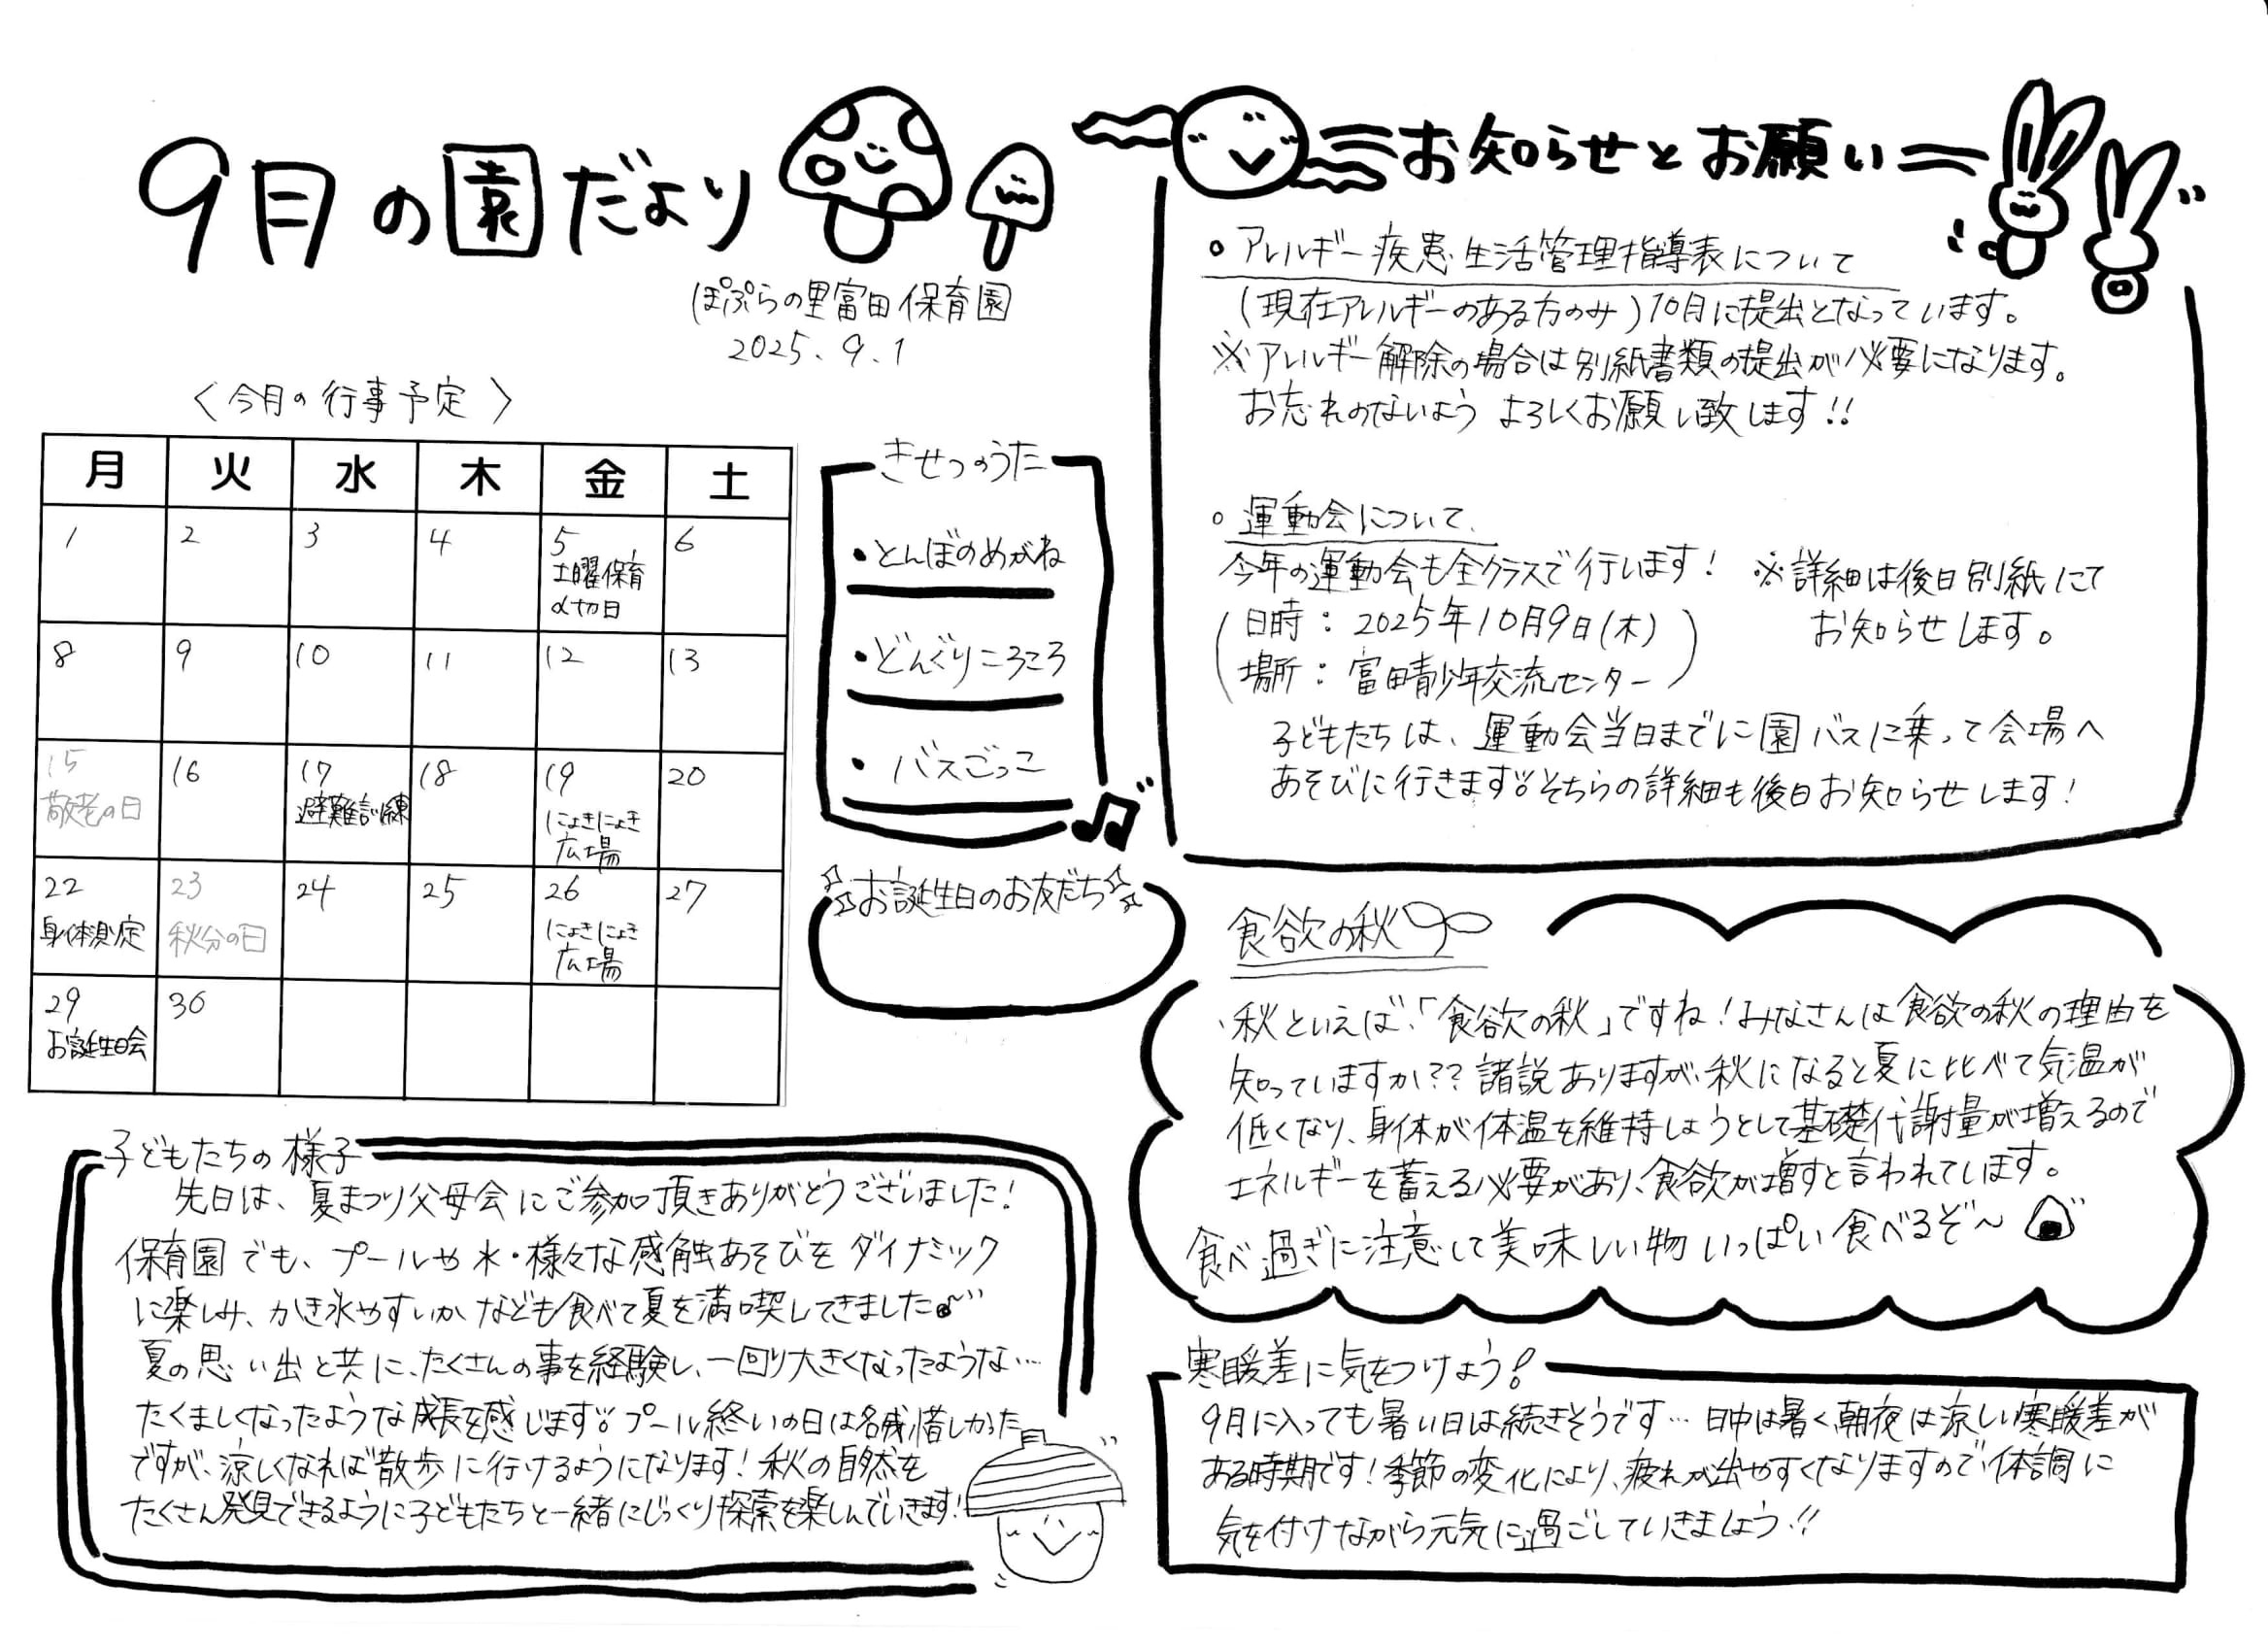 9月の園だより
ぽぷらの里富田保育園
2025.9.1
〈今月の行事予定〉
月 火 水 木 金 土
1 2 3 4 5 6
土曜保育
〆切日
8 9 10 11 12 13
15 16 17 18 19 20
敬老の日 避難訓練 にょきにょき
広場
22 23 24 25 26 27
身体測定 秋分の日 にょきにょき
広場
29 30
お誕生日会
きせつのうた
・とんぼのめがね
・どんぐりころころ
・バスごっこ
お誕生日のお友だち
子どもたちの様子
先日は、夏まつり父母会にご参加頂きありがとうございました!
保育園でも、プールや水・様々な感触あそびをダイナミック
に楽しみ、かき氷やすいかなども食べて夏を満喫してきました
夏の思い出と共に、たくさんの事を経験し、一回り大きくなったような…
たくましくなったような成長を感じます。プール終いの日は名残惜しかった
ですが、涼しくなれば散歩に行けるようになります!秋の自然を
たくさん発見できるように子どもたちと一緒にじっくり探索を楽しんでいきます!
お知らせとお願い
○アレルギー疾患生活管理指導表について
(現在アレルギーのある方のみ)10月に提出となっています。
※アレルギー解除の場合は別紙書類の提出が必要になります。
お忘れのないようよろしくお願い致します!!
○運動会について
今年の運動会も全クラスで行います! ※詳細は後日別紙にて
お知らせします。
日時:2025年10月9日(木)
場所:富田青少年交流センター
子どもたちは、運動会当日までに園バスに乗って会場へ
あそびに行きます。そちらの詳細も後日お知らせします!
食欲の秋
秋といえば、「食欲の秋」ですね!みなさんは食欲の秋の理由を
知っていますか??諸説ありますが、秋になると夏に比べて気温が
低くなり、身体が体温を維持しようとして基礎代謝量が増えるので
エネルギーを蓄える必要があり、食欲が増すと言われています。
食べ過ぎに注意して美味しい物いっぱい食べるぞ〜
寒暖差に気をつけよう!
9月に入っても暑い日は続きそうです…日中は暑く、朝夜は涼しい寒暖差が
ある時期です!季節の変化により、疲れが出やすくなりますので、体調に
気を付けながら元気に過ごしていきましょう!!